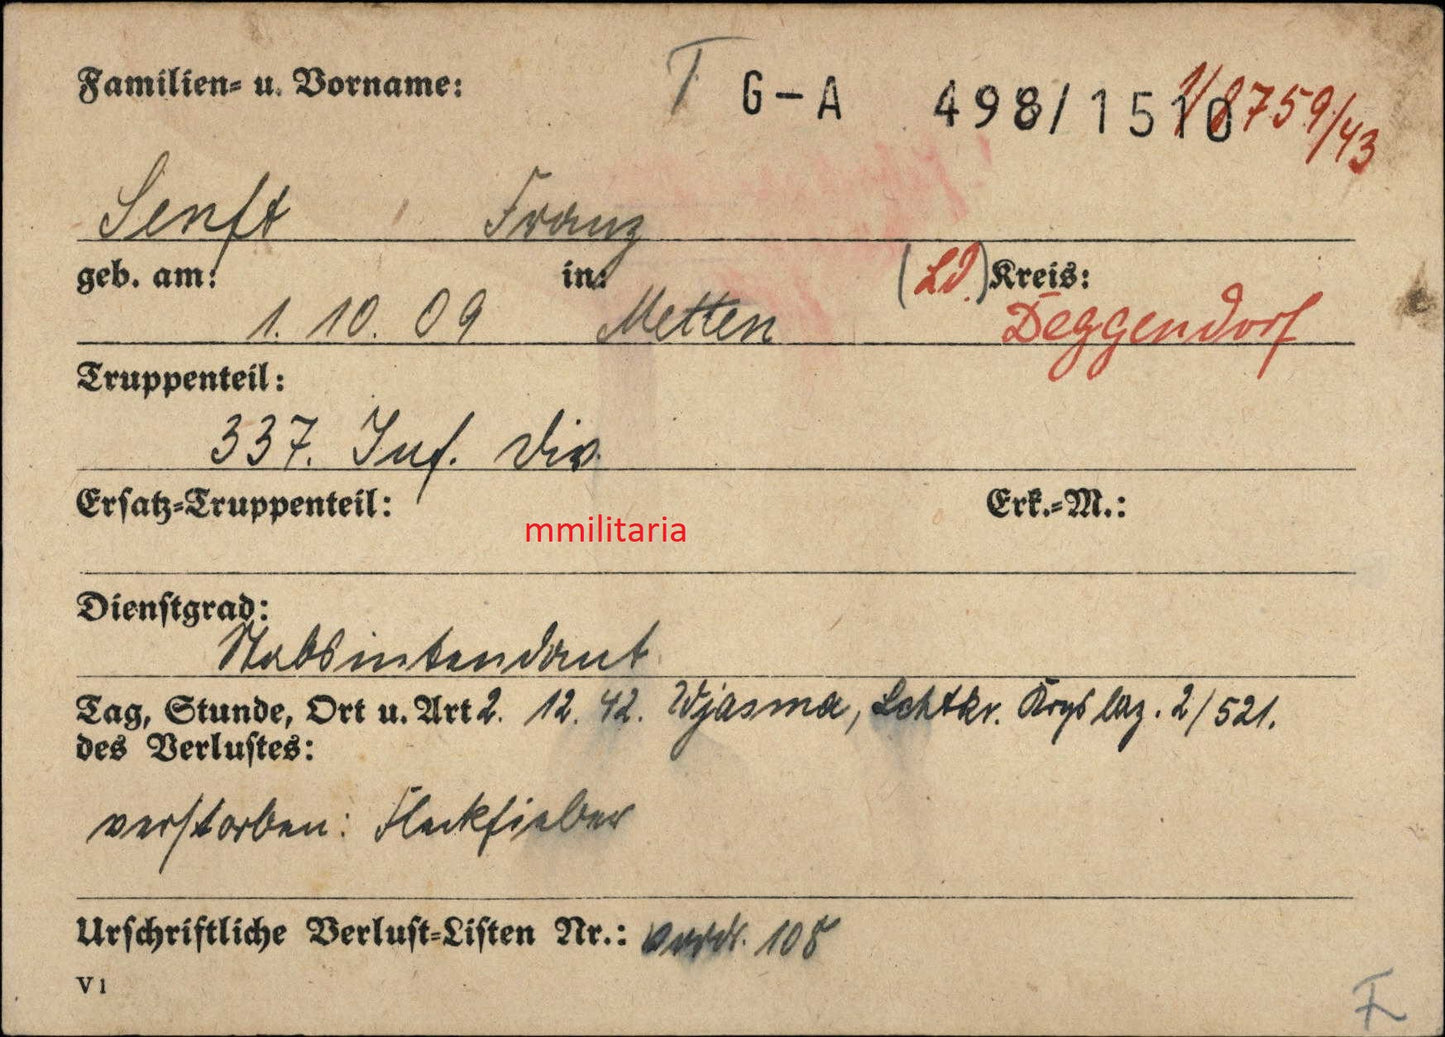 Familien= u. Vorname:
T G-A 498/1510 1/8759/43
Senft Franz
geb. am: in: (Ld.) Kreis:
1. 10. 09 Metten Deggendorf
Truppenteil:
337. Inf. Div.
Ersatz=Truppenteil: Erk.=M.:
mmilitaria
Dienstgrad:
Stabsintendant
Tag, Stunde, Ort u. Art 2. 12. 42. Wjasma, Lchtkr. Krgs laz. 2/521.
des Verlustes:
verstorben: Fleckfieber
Urschriftliche Verlust=Listen Nr.: 108
V 1